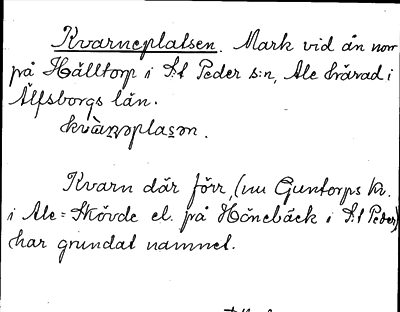 Kvarneplatsen. Mark vid ån norr
på Hålltorp i S:t Peder s:n, Ale härad i
Älfsborgs län.
kvàṇəplasən.
Kvarn där förr, (nu Guntorps kv.
i Ale-Skövde el. på Hönebäck i S:t Peder)
har grundat namnet.